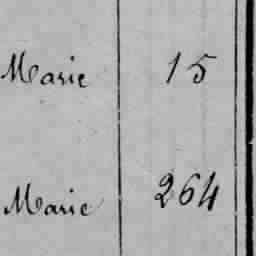 Marie 15
Marie 264